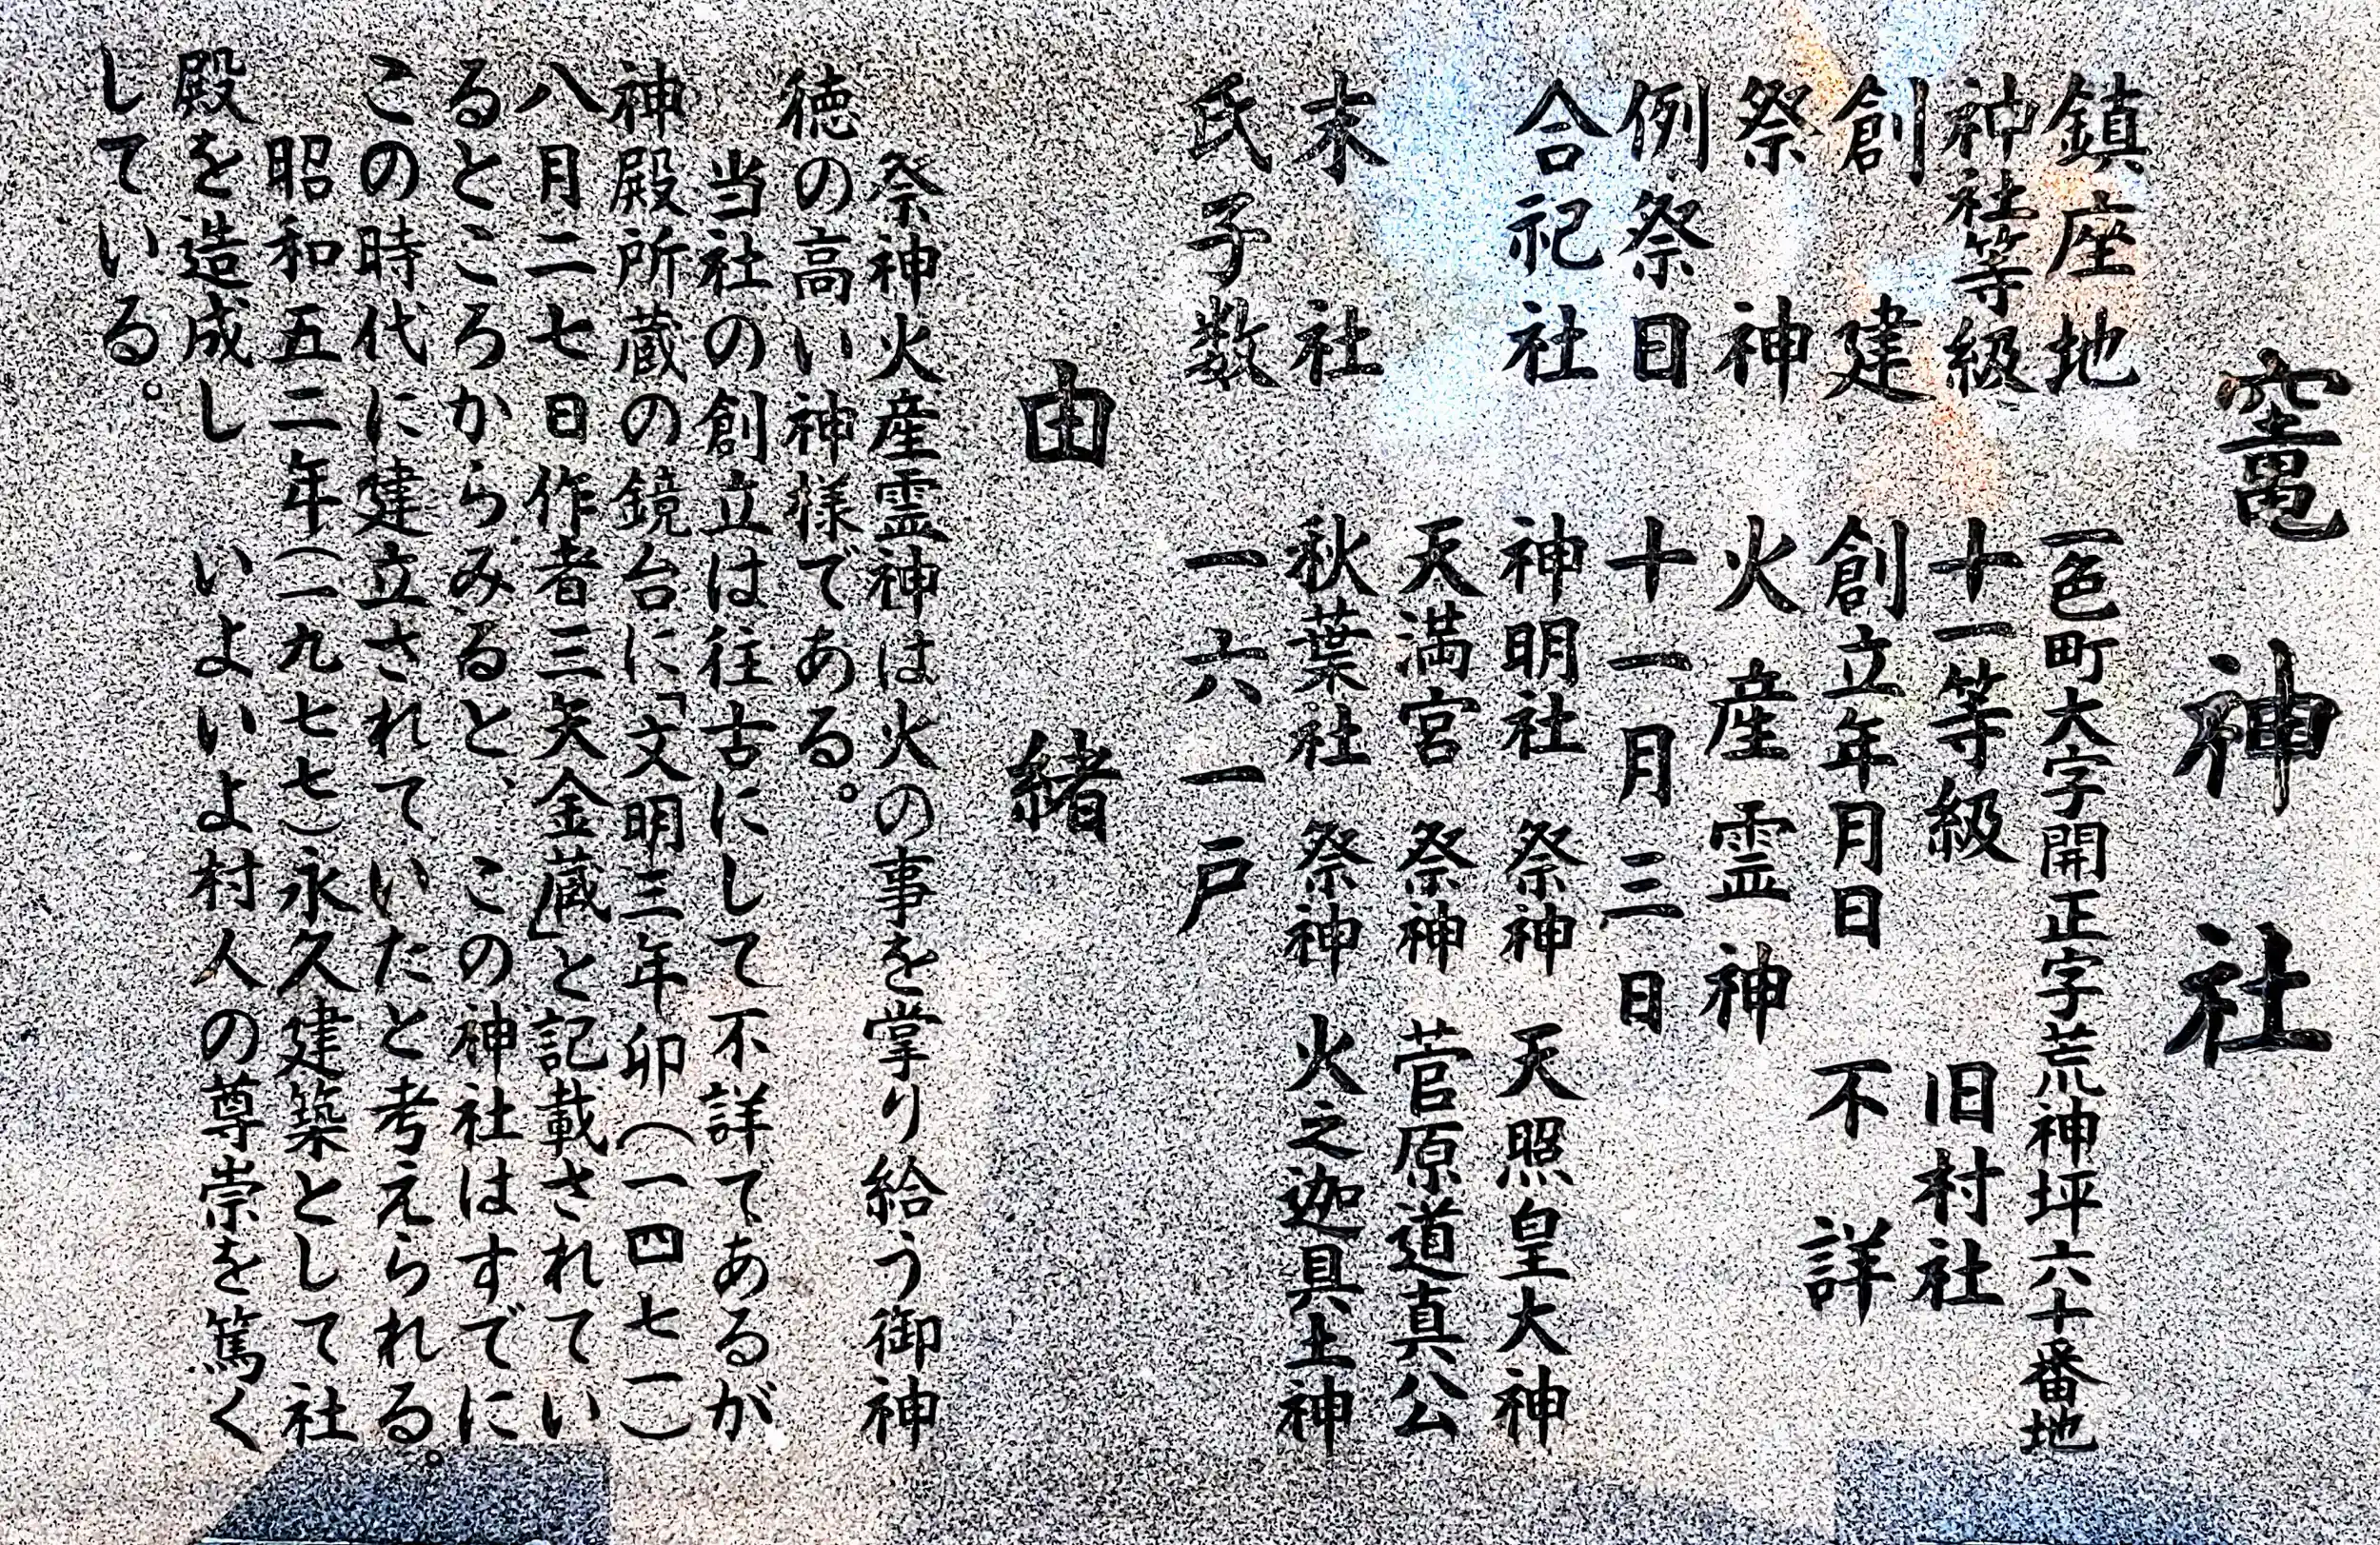 竈神社
鎮座地 一色町大字開正字荒神坪六十番地
神社等級 十一等級 旧村社
創建 創立年月日 不詳
祭神 火産霊神
例祭日 十一月三日
合祀社 神明社 祭神 天照皇大神
天満宮 祭神 菅原道真公
末社 秋葉社 祭神 火之迦具土神
氏子数 一六一戸
由緒
祭神火産霊神は火の事を掌り給う御神
徳の高い神様である。
当社の創立は往古にして不詳てあるが
神殿所蔵の鏡台に「文明三年卯(一四七一)
八月二七日作者三矢金蔵」と記載されてい
るところからみると、この神社はすでに
この時代に建立されていたと考えられる。
昭和五二年(一九七七)永久建築として社
殿を造成し いよいよ村人の尊崇を篤く
している。